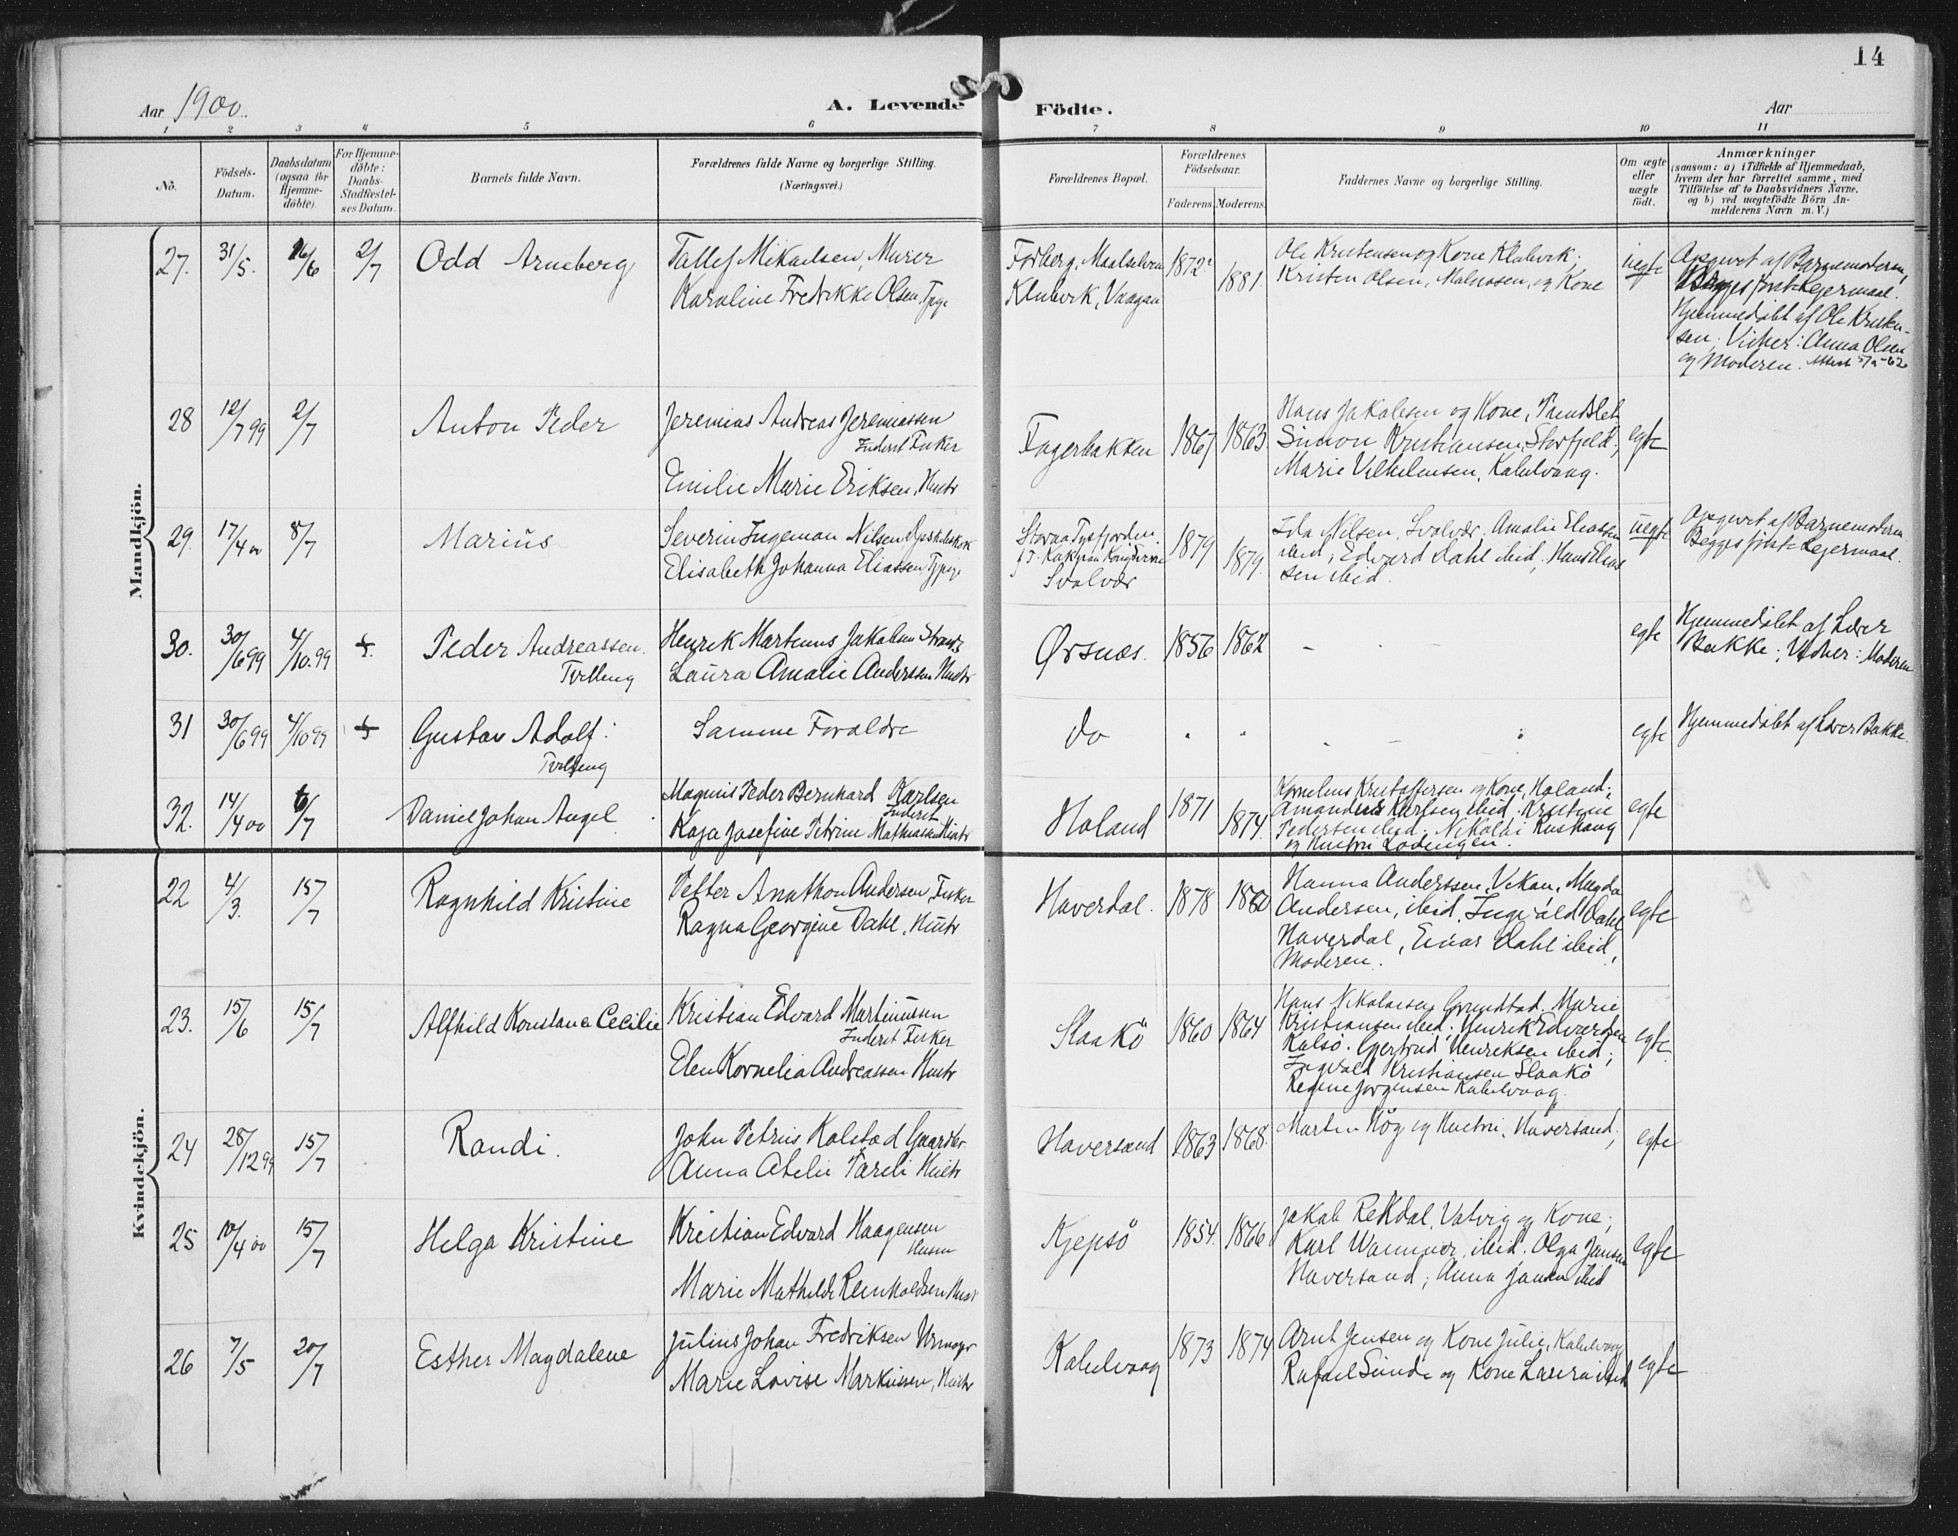 14
Aar 1900.
A. Levende Födte.
Aar
1 2 3 4 5 6 7 8 9 10 11
No.
Födsels-Datum.
Daabsdatum (ogsaa for Hjemme-döbte).
For Hjemme-döbte: Daabs-Stadfæstel-ses Datum.
Barnets fulde Navn.
Forældrenes fulde Navne og borgerlige Stilling. (Næringsvei.)
Forældrenes Bopæl.
Forældrenes Födselsaar.
Faderens. Moderens.
Faddernes Navne og borgerlige Stilling.
Om ægte eller uægte födt.
Anmærkninger
(saasom: a) i Tilfælde af Hjemmedaab, hvem der har forrettet samme, med Tilföielse af to Daabsvidners Navne, og b) ved uægtefödte Börn An-melderens Navn m. V.)
Mandkjön.
27. 31/5. 16/6 2/7 Odd Arneberg
Tallef Mikaelsen, Murer
Karoline Fredrikke Olsen, Tpge
Klubvik, Vaagan
1872 1881.
Ole Kristensen og Kone Klubvik;
Kristen Olsen, Malnesen, og Kone
uegte
Opgivet af Barnemoderen,
Begges første Lejermaal.
Hjemmedøbt af Ole Kristen-
sen; Vidner: Anna Olsen
og Moderen.
28 12/7 99 2/7 Anton Peder
Jeremias Andreas Jeremiassen
Inderst Fisker
Emilie Marie Eriksen, Hustr
Fagerbakken 1867 1863
Hans Jakobsen og Kone,
Simon Kristiansen, Storfjeld;
Marie Vilhelmsen, Kabelvaag.
egte
29. 17/4 00 8/7 Marius
Severin Ingeman Nilsen
Elisabeth Johanna Eliassen, Tpge
Svolvær
1879 1879.
Ida Nilsen, Svolvær, Amalie Eliassen
ibid; Edvard Dahl ibid, Hans Elias
sen ibid.
uegte
Opgivet af Barnemoderen
Begges første Lejermaal.
30. 30/6 99 4/10. 99 Peder Andreassen.
Tvilling
Henrik Martinus Jakobsen
Laura Amalie Anderssen Hustr
Ørsnes. 1856 1862 egte
Hjemmedøbt af Lærer
Bakke; Vidner: Moderen
31 30/6 99 4/10 99 Gustav Adolf:
Tvilling
Samme Forældre
do egte
Hjemmedøbt af Lærer Bakke.
32. 14/4 00 6/7 Daniel Johan Angel
Magnus Peder Bernhard Karlsen
Inderst
Kaja Josefine Petrine Mathiassen Hustr
Holand 1871 1874.
Kornelius Kristoffersen og Kone, Holand;
Amandus Karlsen ibid, Kristine
Pedersen ibid. Nikolai
og Hustru Lodingen.
egte
Kvindekjön.
22 4/3. 15/7 Ragnhild Kristine
Petter Anathon Andersen, Fisker
Ragna Georgine Dahl, Hustr
Haverdal. 1878
Hanna Anderssen, Vikan, Magda
Andersen, ibid, Ingvald Dahl
Haverdal, Einar Dahl ibid,
Moderen.
egte
23. 15/6 15/7 Alfhild Konstance Cecilie
Kristian Edvard Martinussen
Inderst Fisker
Elen Kornelia Andreassen Hustr
Slaakö 1860 1864
Hans Nikolaisen, Grundstad. Marie
Kristiansen ibid; Henrik Edvardsen
Kalsö. Gjertrud Henriksen ibid;
Ingvald Kristiansen Slaakö
Regine Jørgensen Kabelvaag.
egte
24 28/12 99 15/7 Randi.
John Petrus Kolstad Gaardbr
Anna Atelie Pareli Hustr
Haversand 1863 1868.
Martin Høg og Hustru, Haversand;
egte
25 10/4 00 15/7 Helga Kristine
Kristian Edvard Haagensen
Husm
Marie Mathilde Reinholdsen Hust
Kjepsö 1854. 1866
Jakob Rekdal, Vatvig og Kone;
Karl Wannvær, ibid. Olga Jansen
Haversand; Anna Jansen ibid
egte
26 7/5 20/7 Esther Magdalene
Julius Johan Fredriksen Urmager
Marie Lovise Markussen, Hustr
Kabelvaag 1873 1874
Arnt Jensen og Kone Julie, Kabelvaag
Rafael Sunde og Kone Laura ibid
egte